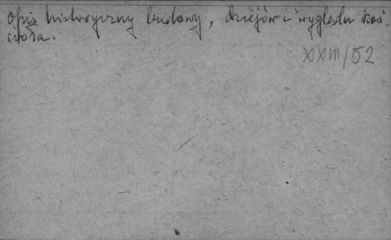 opis historyczny budowy, dziejów i wyglądu koś-
cioła.
XXIII/52